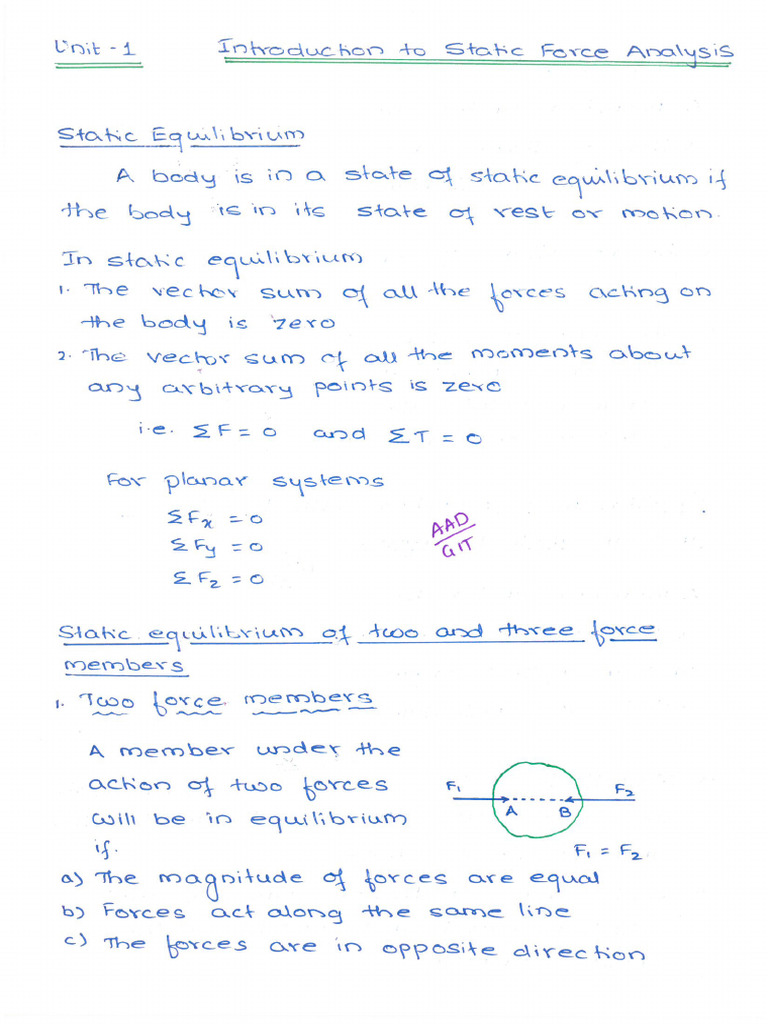 Unit - 1 Introduction to Static Force Analysis
Static Equilibrium
A body is in a state of static equilibrium if
the body is in its state of rest or motion.
In static equilibrium
1. The vector sum of all the forces acting on
the body is zero
2. The vector sum of all the moments about
any arbitrary points is zero
i.e. ΣF = 0 and ΣT = 0
For planar systems
ΣFx = 0
ΣFy = 0
ΣFz = 0
AAD
GIT
Static equilibrium of two and three force
members
1. Two force members
A member under the
action of two forces
will be in equilibrium
if.
F1 F2
A B
F1 = F2
a) The magnitude of forces are equal
b) Forces act along the same line
c) The forces are in opposite direction